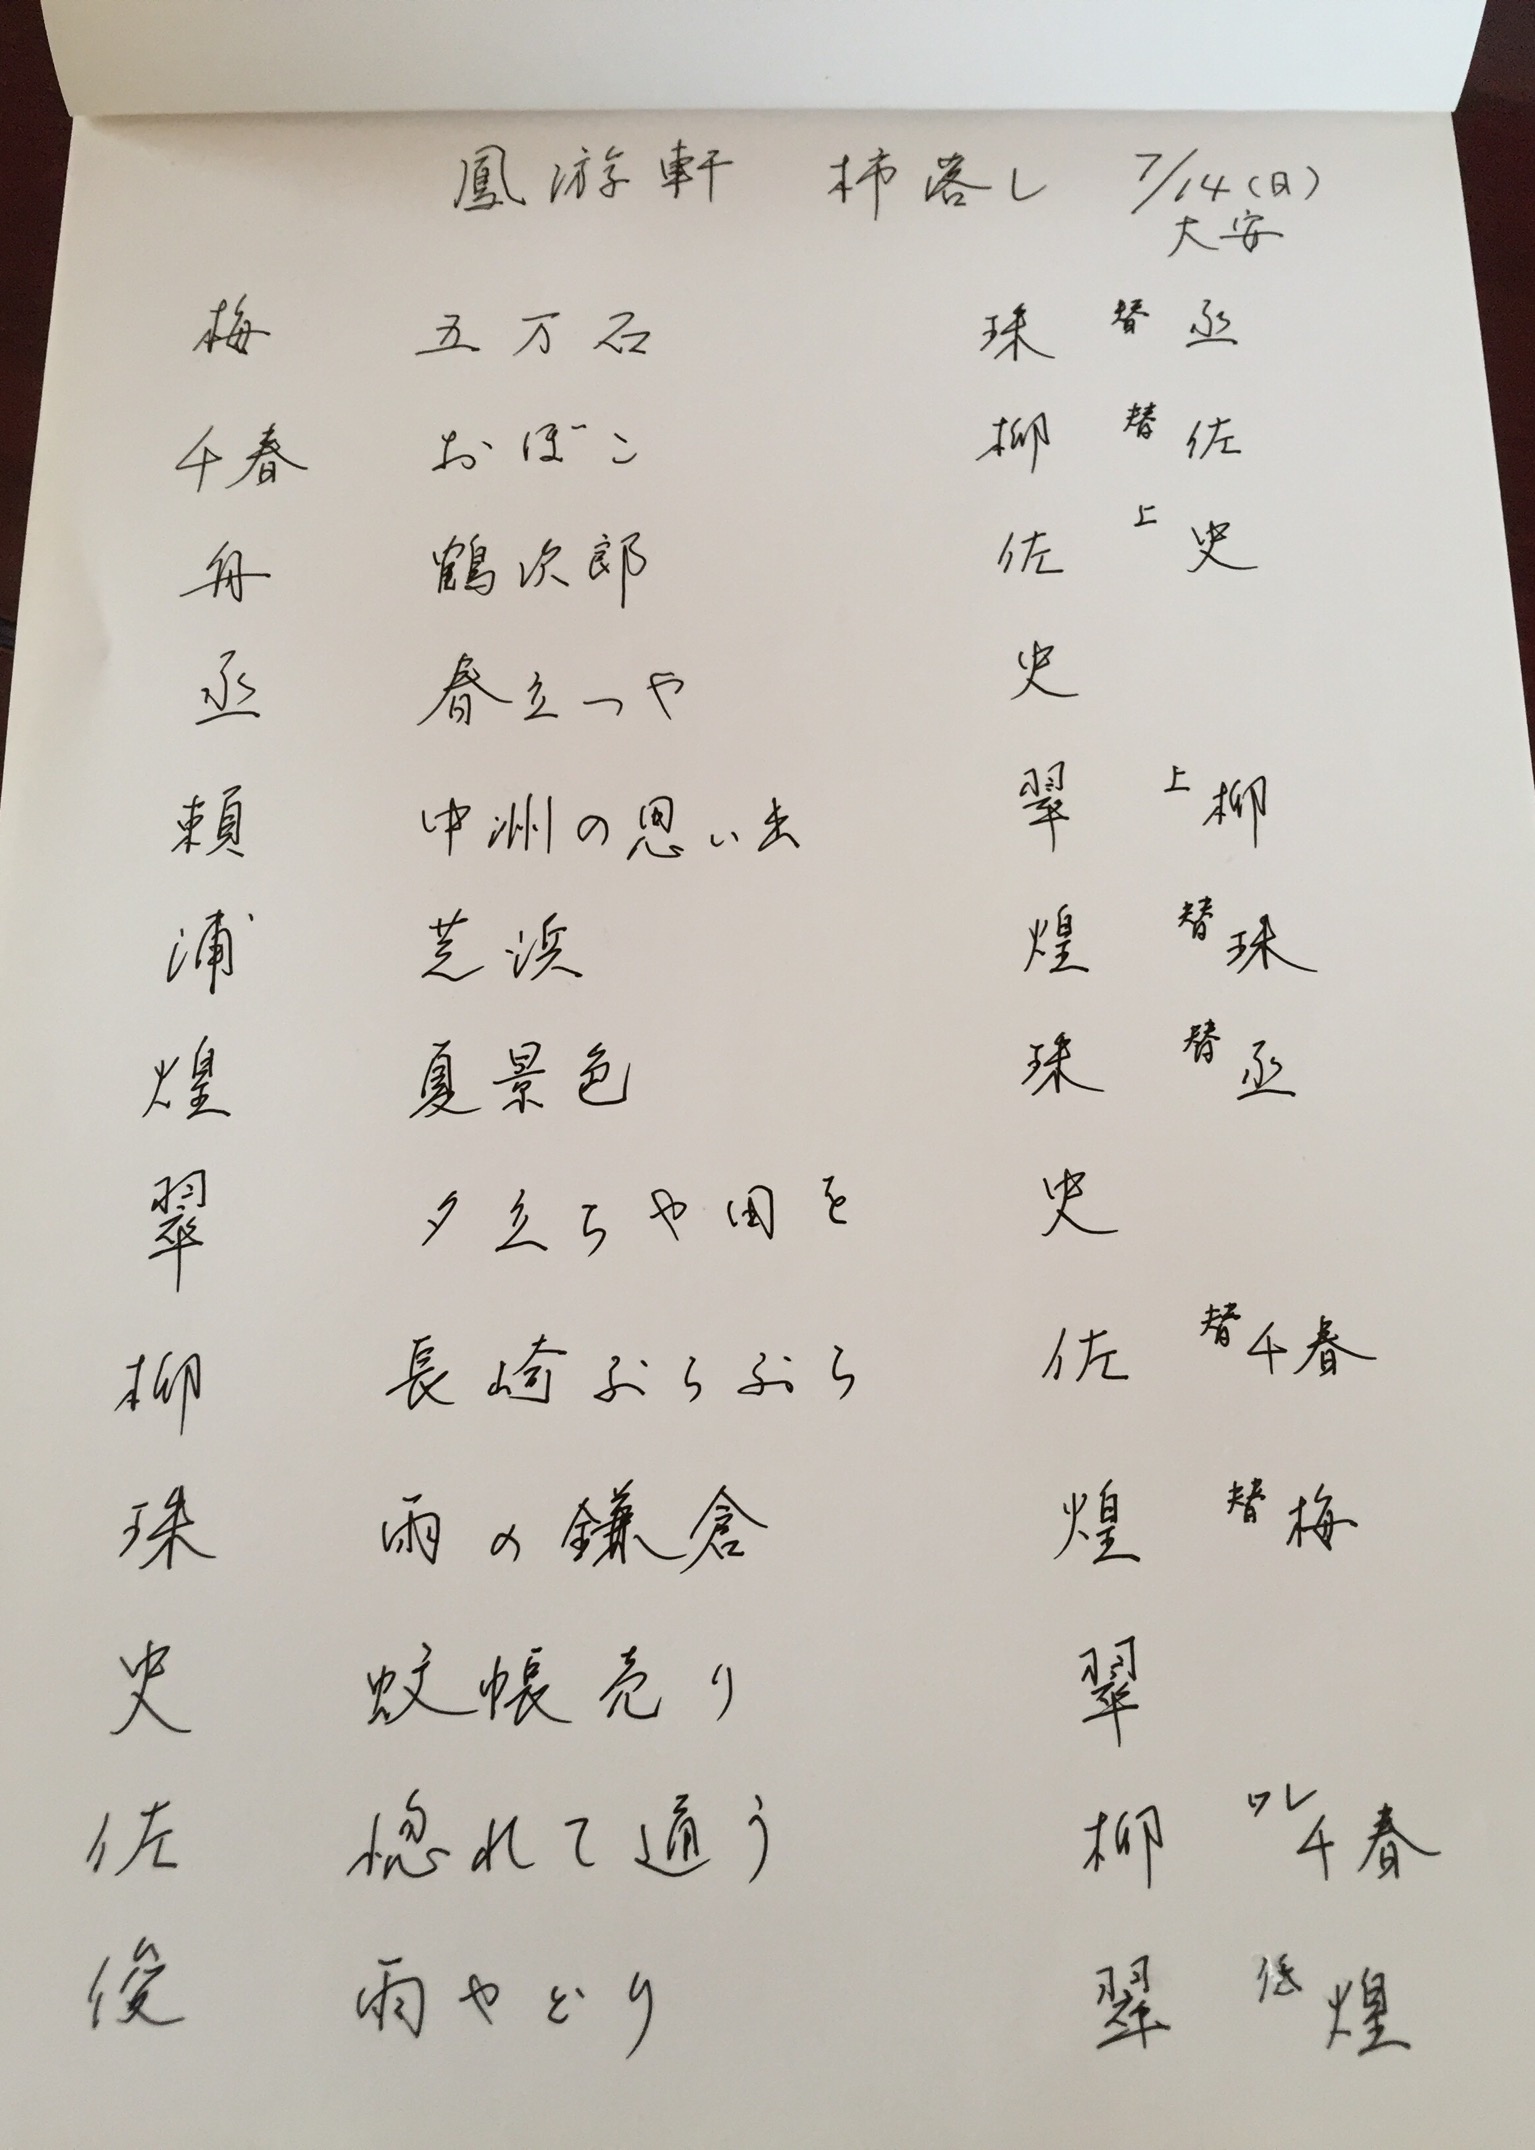 鳳游軒 杮落し 7/14(日)
大安
梅 五万石 珠 替 丞
千春 おぼこ 柳 替 佐
舟 鶴次郎 佐 上 史
丞 春立つや 史
頼 中洲の思い出 翠 上 柳
浦 芝浜 煌 替 珠
煌 夏景色 珠 替 丞
翠 夕立ちや田を 史
柳 長崎ぶらぶら 佐 替 千春
珠 雨の鎌倉 煌 替 梅
史 蚊帳売り 翠
佐 惚れて通う 柳 ワレ 千春
俊 雨やどり 翠 低 煌